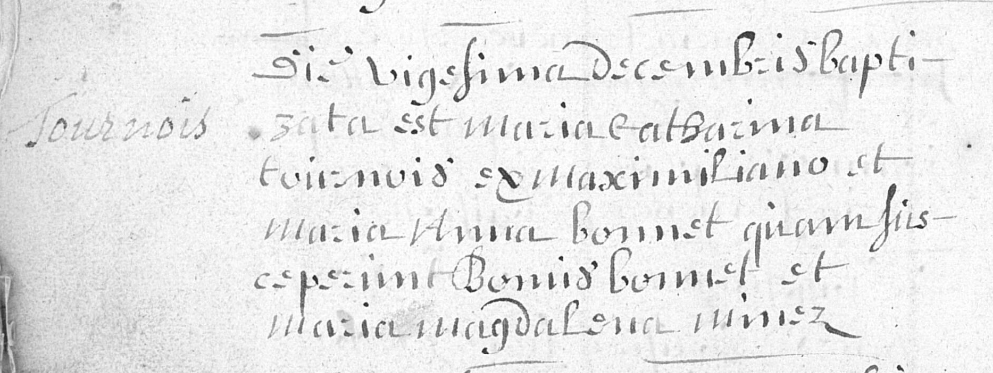 Die vigesima decembris bapti-
Tournois
zata est maria Catharina
tournois ex maximiliano et
maria Anna bonnet quam sus-
ceperunt Bonus bonnet et
maria magdalena